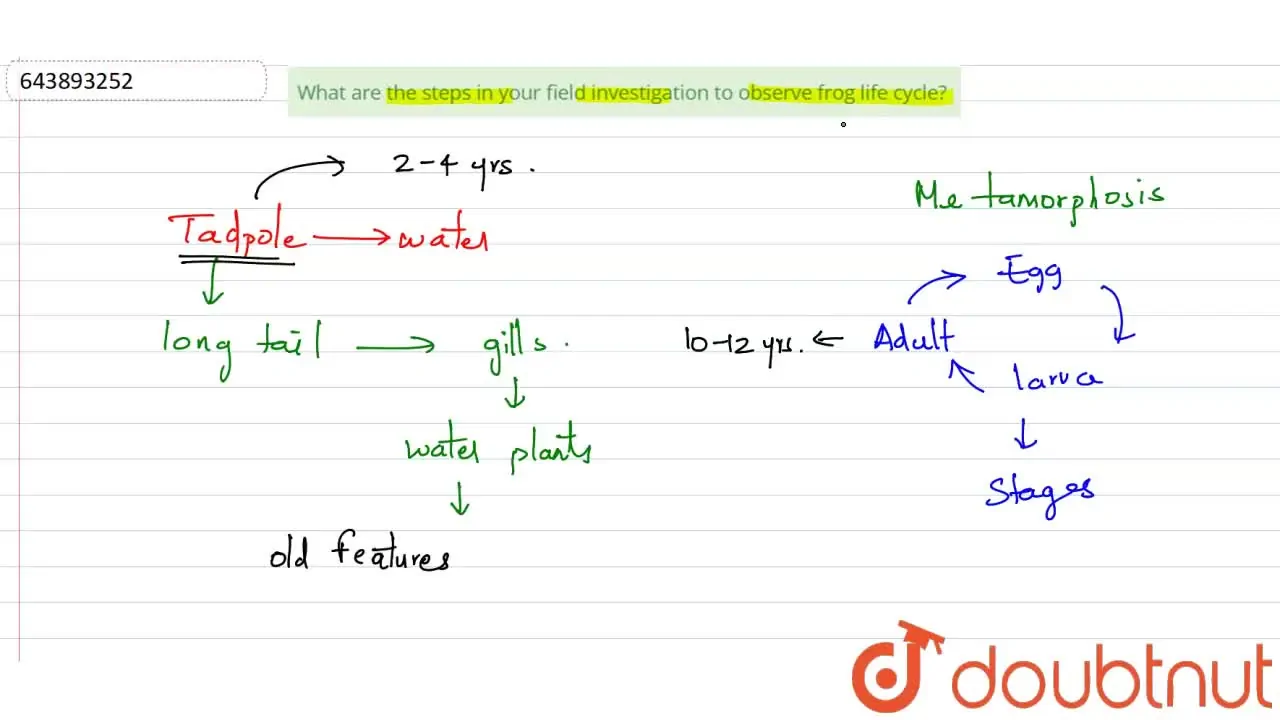 643893252
What are the steps in your field investigation to observe frog life cycle?
2-4 yrs.
Tadpole → water
long tail → gills.
water plants
old features
Metamorphosis
Egg
10-12 yrs. ← Adult
larva
Stages
doubtnut